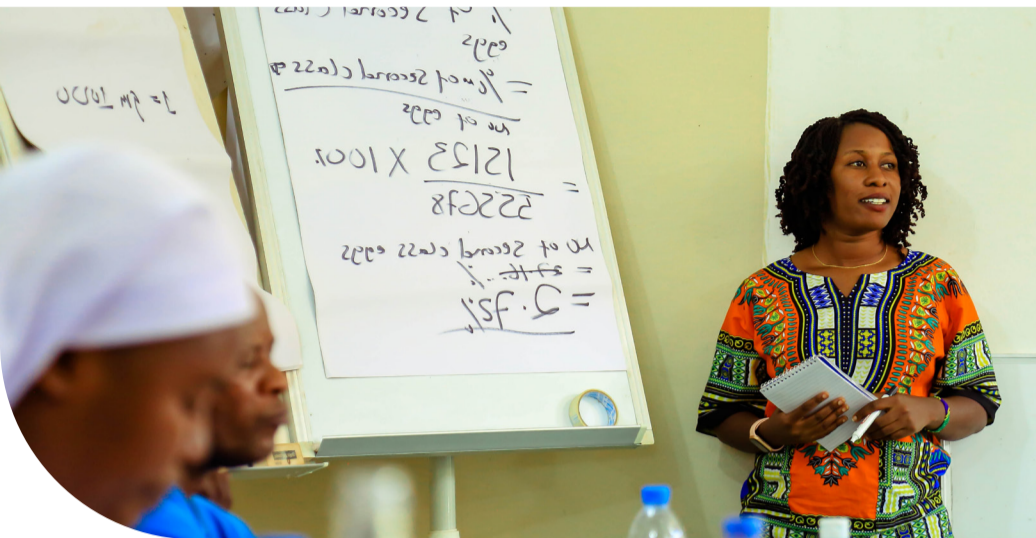 % of Second Class
eggs
= % no of Second class
no of eggs
= 15123 X 100%
555678
no of Second class eggs
=
= 2.72%